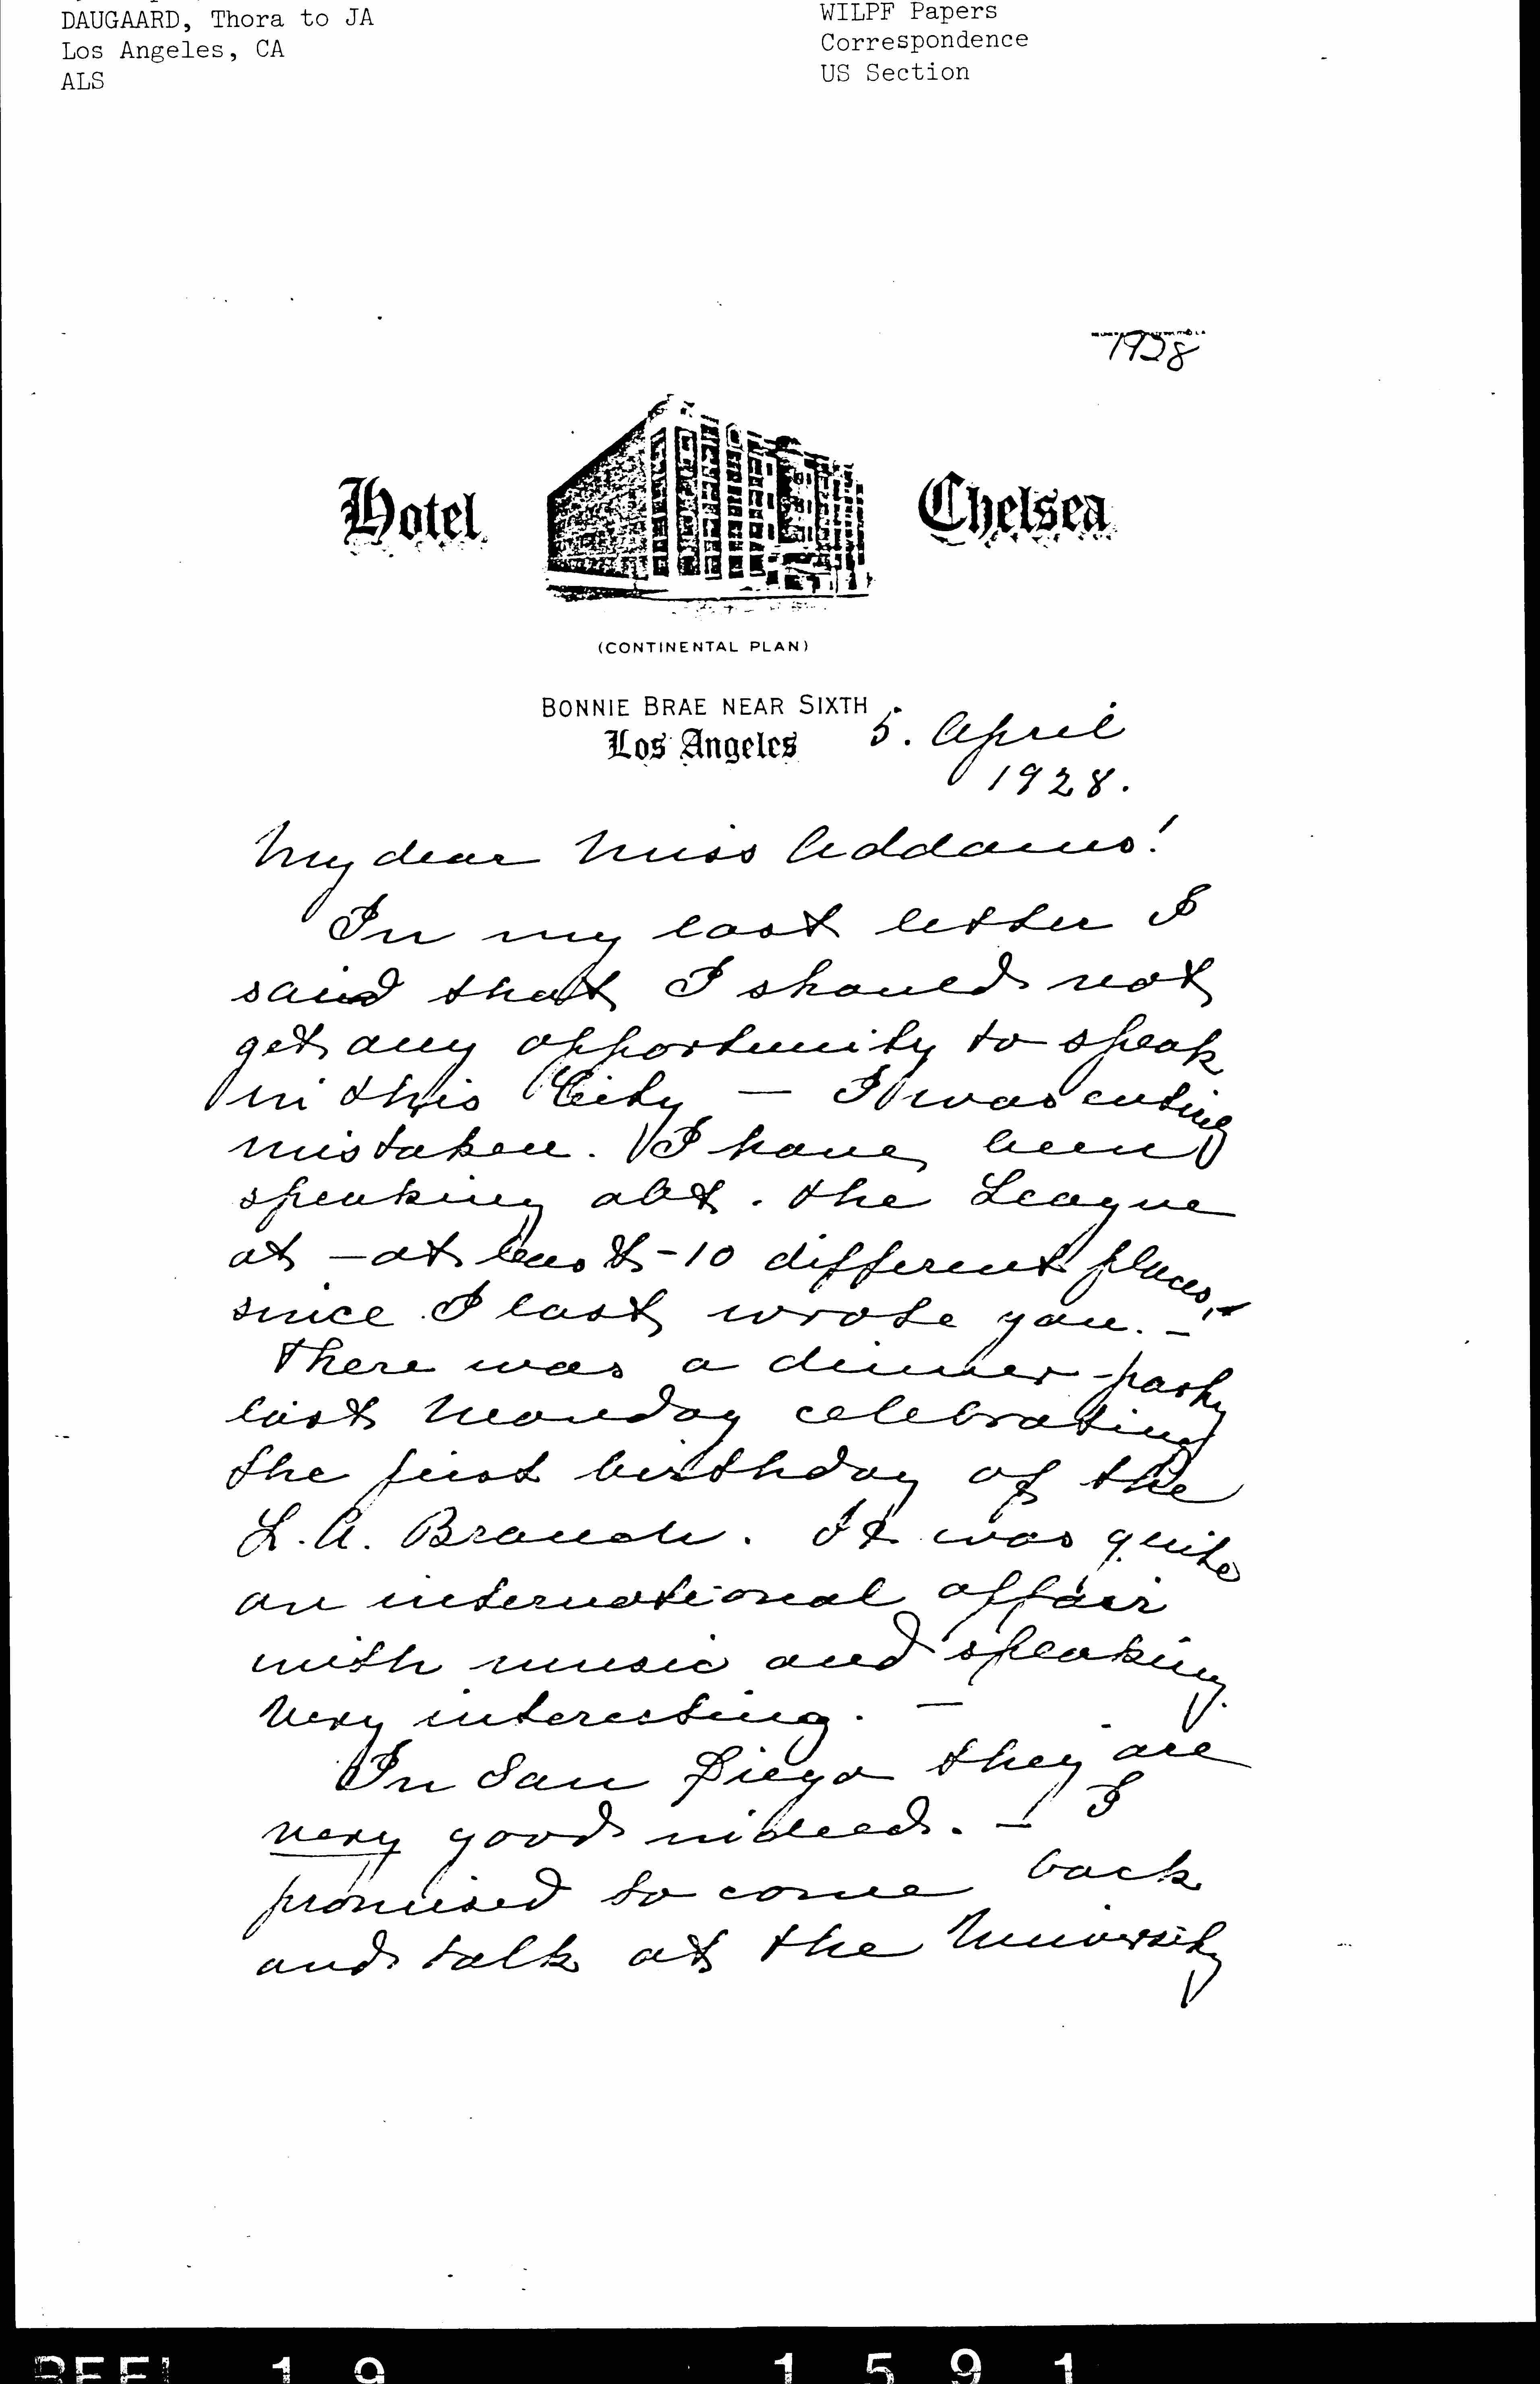 DAUGAARD, Thora to JA
Los Angeles, CA
ALS
WILPF Papers
Correspondence
US Section
1928
Hotel Chelsea
(CONTINENTAL PLAN)
BONNIE BRAE NEAR SIXTH
Los Angeles
5. April
1928.
My dear Miss Addams!
In my last letter I
said that I should not
get any opportunity to speak
in this City – I was
mistaken. I have been
speaking abt. the League
at – at least – 10 different places,
since I last wrote you. –
There was a dinner-party
last Monday celebrating
the first birthday of the
L.A. Branch. It was quite
an international affair
with music and speaking.
Very interesting. –
In San Diego they are
very good indeed. – I
promised to come back
and talk at the University
REEL 19 1591